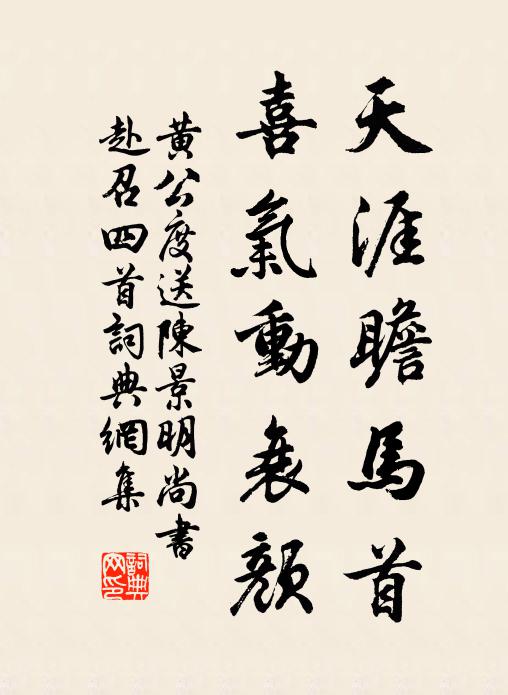 天涯瞻馬首
喜氣動衰顏
黃公度送陳景明尚書
赴召四首詞典網集
詞典
网印